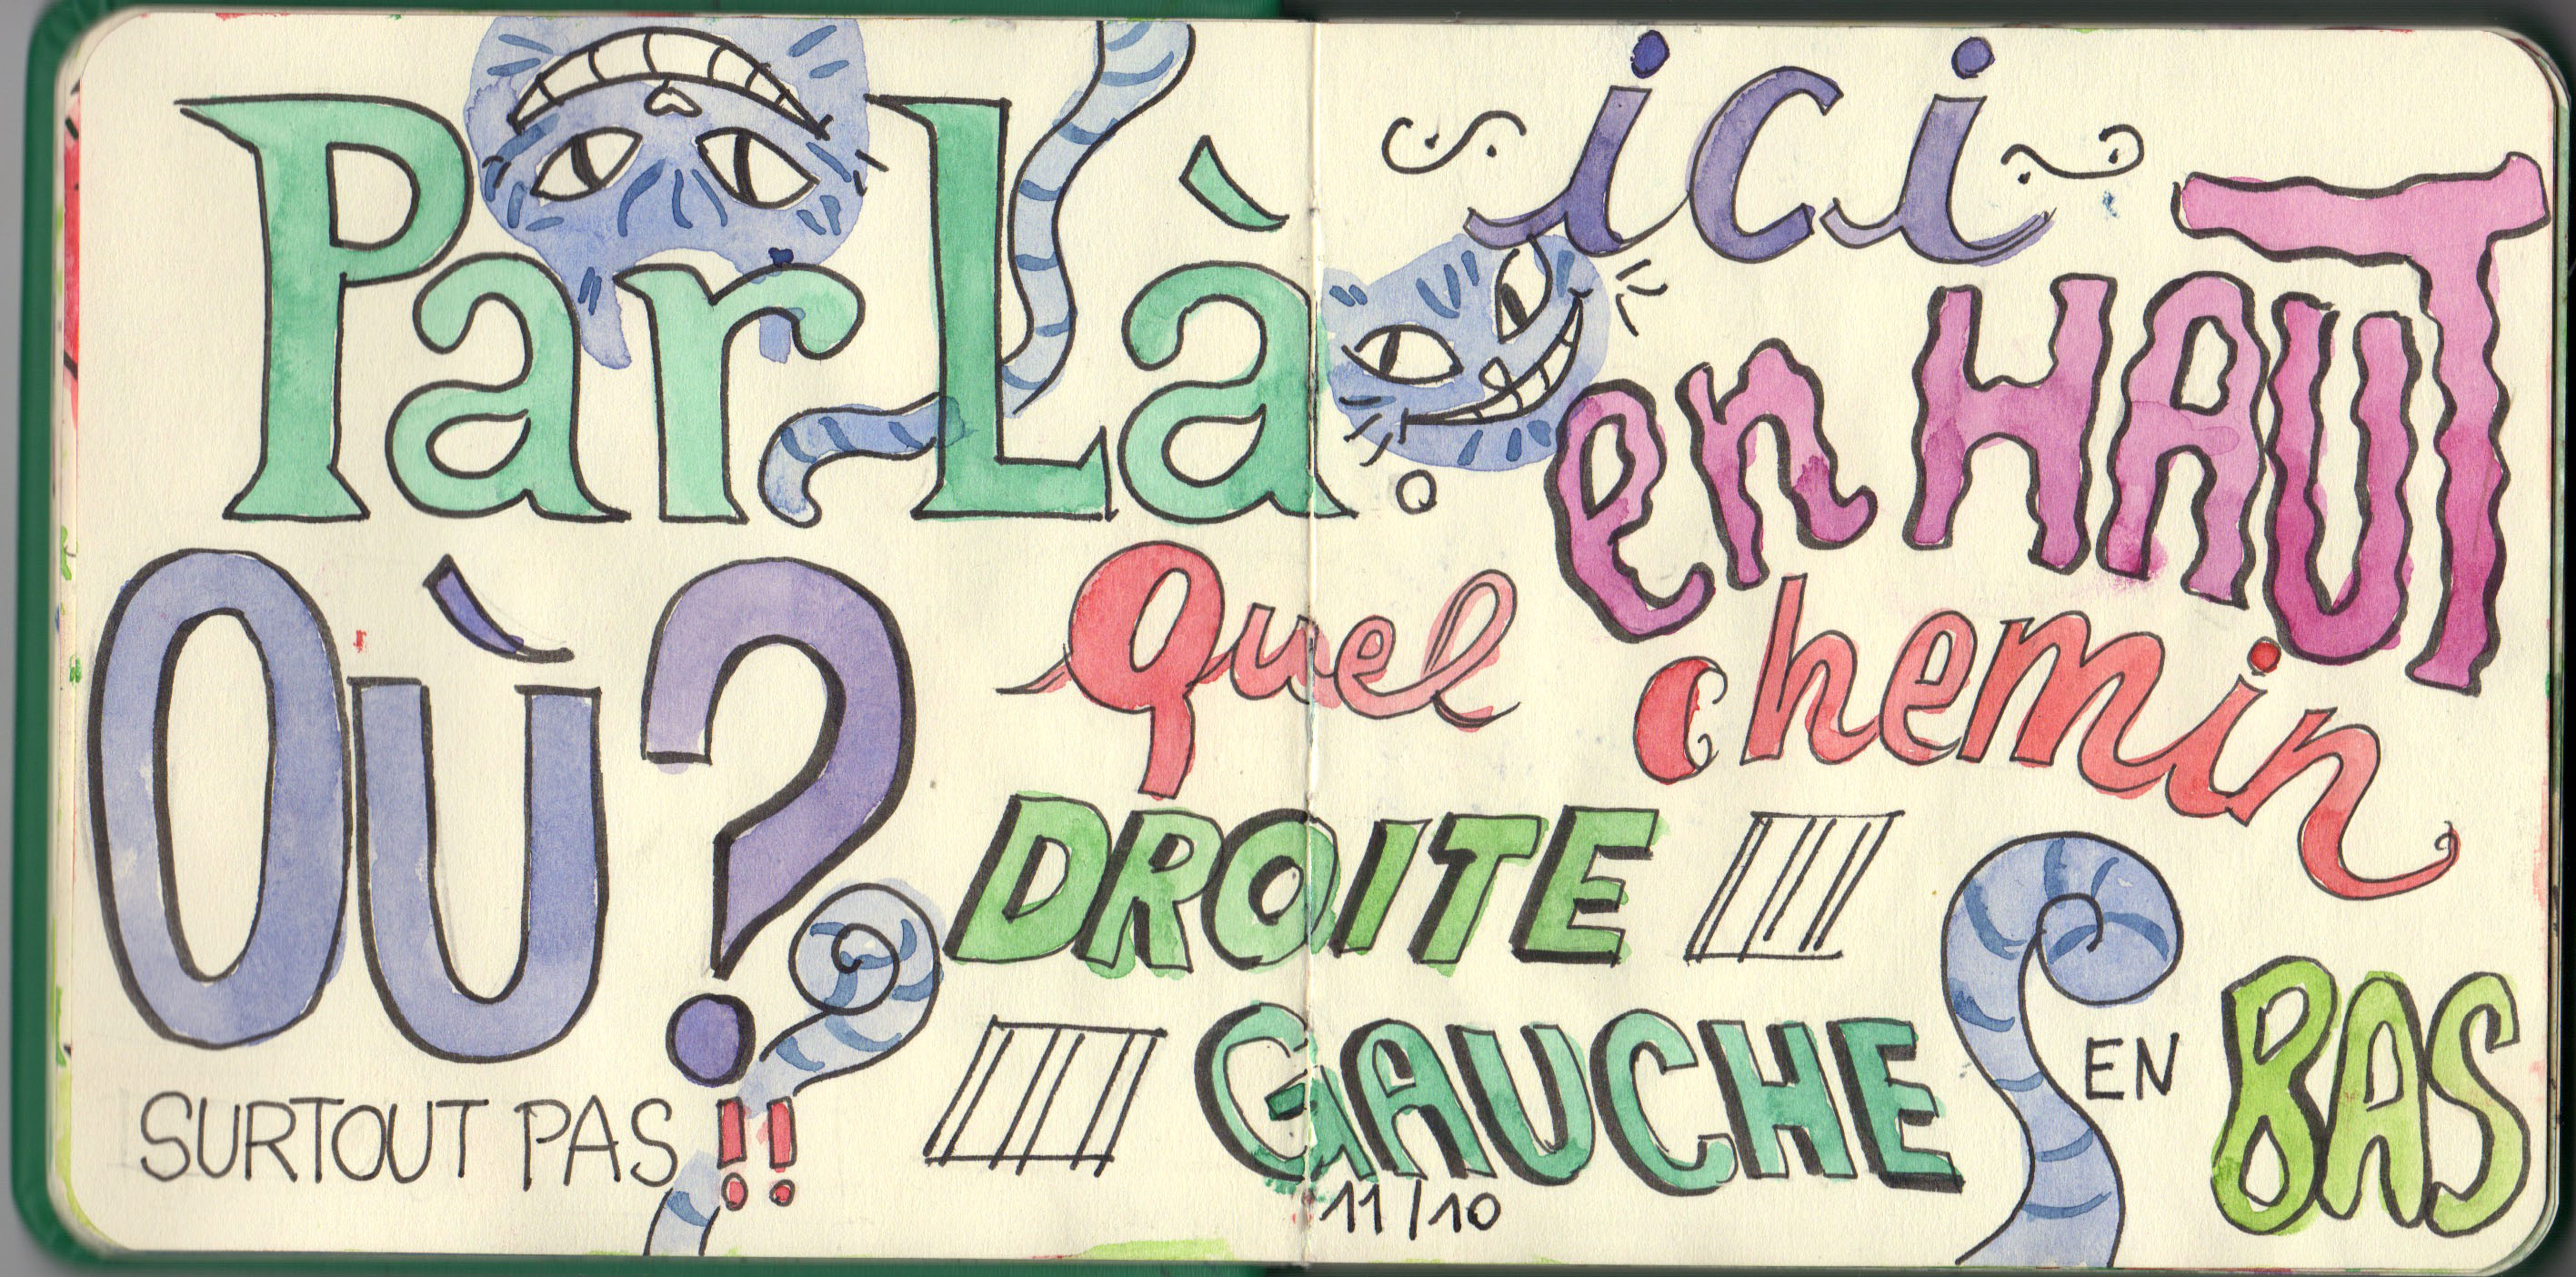 Par Là
ici
en HAUT
Où ?
quel chemin
DROITE
GAUCHE
EN BAS
SURTOUT PAS !!
11/10